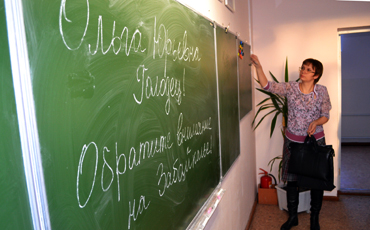 Ольга Юрьевна
Гайдец!
Обратите внимание
на Забайкалье!